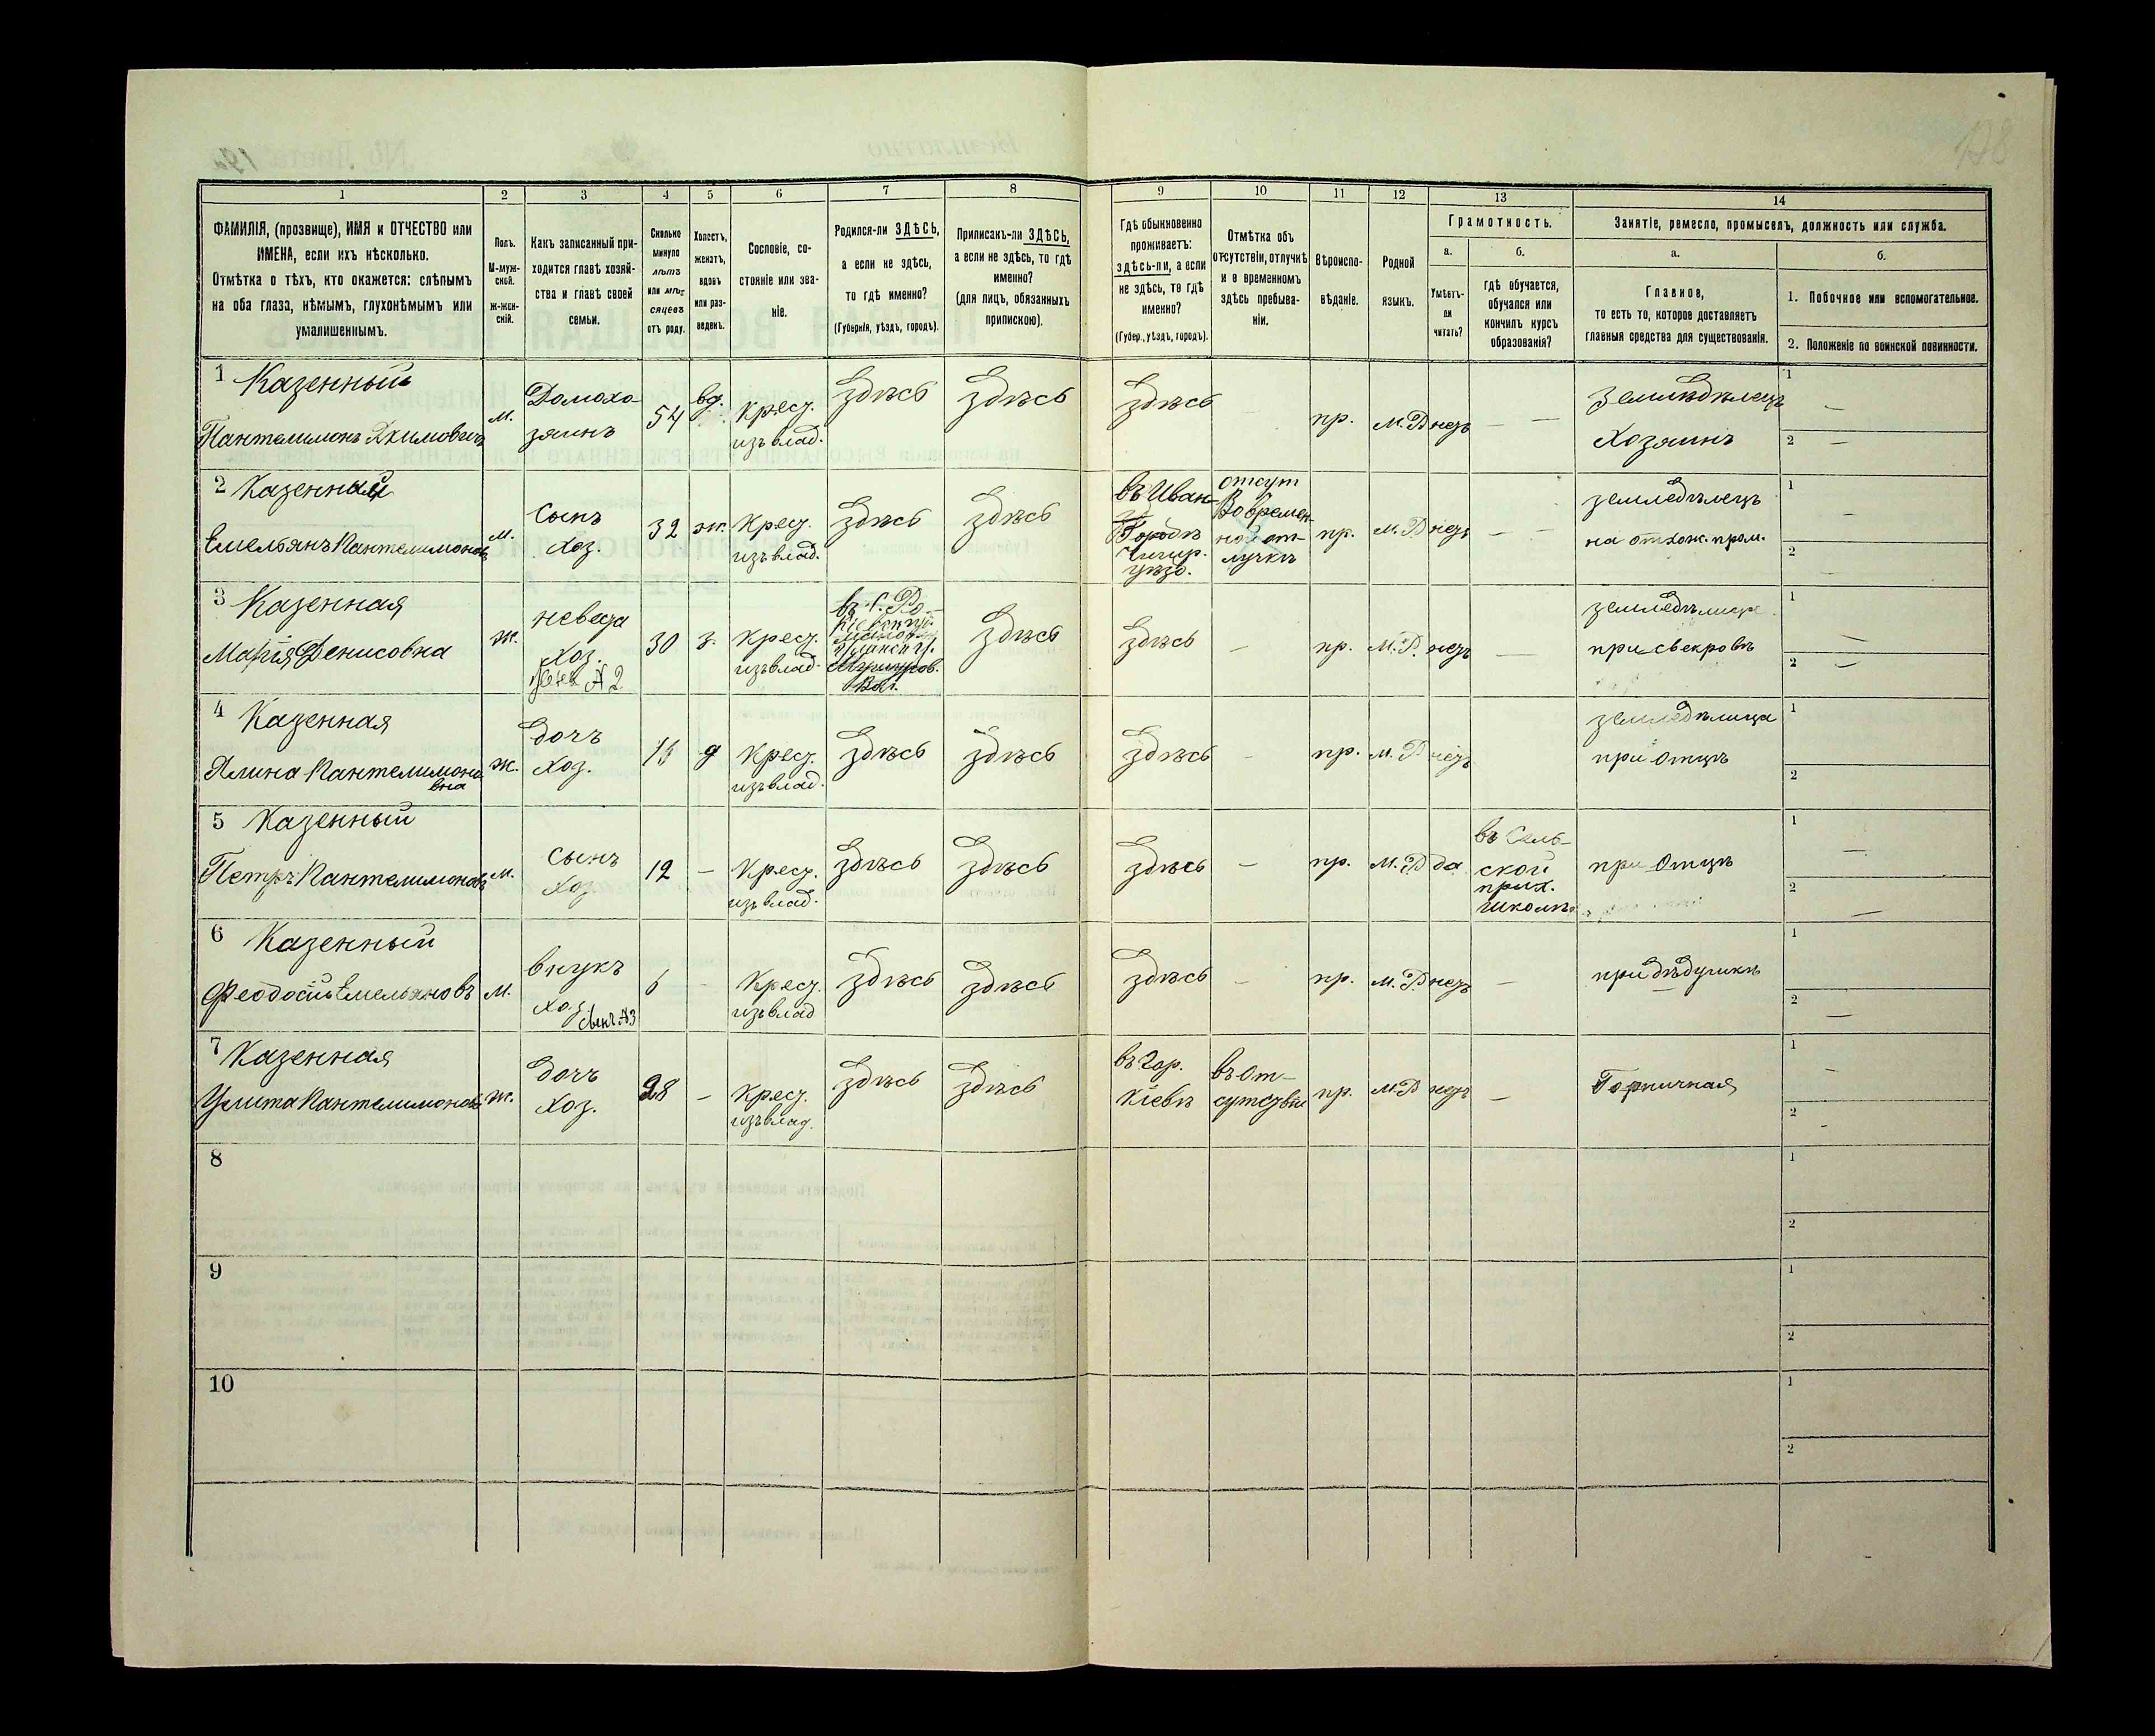 178
1 2 3 4 5 6 7 8 9 10 11 12 13 14
ФАМИЛІЯ, (прозвище), ИМЯ и ОТЧЕСТВО или
ИМЕНА, если ихъ нѣсколько.
Отмѣтка о тѣхъ, кто окажется: слѣпымъ
на оба глаза, нѣмымъ, глухонѣмымъ или
умалишеннымъ.
Полъ.
М-муж-
ской.
ж-жен-
скій.
Какъ записанный при-
ходится главѣ хозяй-
ства и главѣ своей
семьи.
Сколько
минуло
лѣтъ
или мѣ-
сяцевъ
отъ роду.
Холостъ,
женатъ,
вдовъ
или раз-
веденъ.
Сословіе, со-
стояніе или зва-
ніе.
Родился-ли ЗДѢСЬ,
а если не здѣсь,
то гдѣ именно?
(Губернія, уѣздъ, городъ).
Приписанъ-ли ЗДѢСЬ,
а если не здѣсь, то гдѣ
именно?
(для лицъ, обязанныхъ
припискою).
Гдѣ обыкновенно
проживаетъ:
здѣсь-ли, а если
не здѣсь, то гдѣ
именно?
(Губер., уѣздъ, городъ).
Отмѣтка объ
отсутствіи, отлучкѣ
и о временномъ
здѣсь пребыва-
ніи.
Вѣроиспо-
вѣданіе.
Родной
языкъ.
Грамотность.
а.
Умѣетъ-
ли
читать?
б.
гдѣ обучается,
обучался или
кончилъ курсъ
образованія?
Занятіе, ремесло, промыселъ, должность или служба.
а.
Главное,
то есть то, которое доставляетъ
главныя средства для существованія.
б.
1. Побочное или вспомогательное.
2. Положеніе по воинской повинности.
1 Казенный
Пантелимонъ Якимовичъ
м.
Домохо
зяинъ
54
вд.
Крест.
изъ влад.
Здѣсь
Здѣсь
Здѣсь
—
пр.
М.Р
нетъ
—
Земледѣлецъ
Хозяинъ
1 —
2 —
2 Казенный
Емельянъ Пантелимоновъ
м.
Сынъ
Хоз.
32
ж.
Крест.
изъ влад.
Здѣсь
Здѣсь
въ Иван-
Городѣ
Чигир.
уѣзд.
отсут
Во времен
ной от-
лучкѣ
пр.
М.Р
нетъ
—
земледѣлецъ
на отхож. пром.
1 —
2
3 Казенная
Марія Денисовна
ж.
невеста
Хоз.
жена №2
30
з.
Крест.
изъ влад.
Здѣсь
Здѣсь
—
пр.
М.Р.
нетъ
—
земледѣлица
при свекровѣ
1 —
2 —
4 Казенная
Ялина Пантелимоно
вна
ж.
Дочъ
Хоз.
д
Крест.
изъ влад.
Здѣсь
Здѣсь
Здѣсь
—
пр.
М. Р
нетъ
земледѣлица
при отцѣ
1
2
5 Казенный
Петръ Пантелимоновъ
м.
Сынъ
Хоз
12
—
Крест.
изъ влад.
Здѣсь
Здѣсь
Здѣсь
—
пр.
М.Р
да
въ Сель-
ской
прих.
школѣ
при Отцѣ
1 —
2 —
6 Казенный
Феодосій Емельяновъ
м.
внукъ
Хоз.
сынъ №3
6
-
Крест.
изъ влад
Здѣсь
Здѣсь
Здѣсь
—
пр.
М.Р
нетъ
—
при дѣдушкѣ
1
2 —
7 Казенная
Улита Пантелимонов.
ж.
Дочъ
Хоз.
28
—
Крест.
изъ влад.
Здѣсь
Здѣсь
въ Гор.
Кіевѣ
въ От-
сутствіи
пр.
М.Р
нетъ
—
Горничная
1 —
2 -
8
1
2
9
1
2
10
1
2